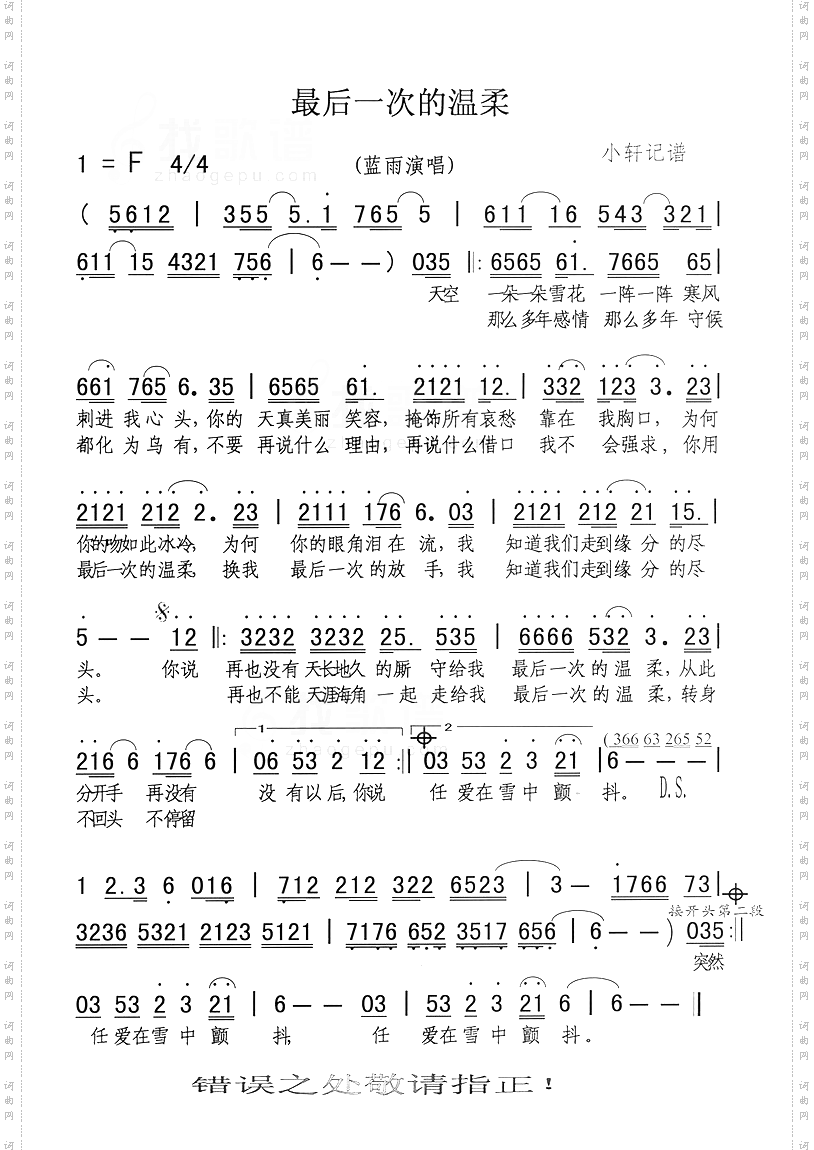 最后一次的温柔
小轩记谱
1 = F 4/4 (蓝雨演唱)
找歌谱
zhaogepu.com
( 5612 | 355 5.1 765 5 | 611 16 543 321 |
611 15 4321 756 | 6 — — ) 035 ‖: 6565 61. 7665 65 |
天空 一朵一朵雪花 一阵一阵 寒风
那么多年感情 那么多年 守候
661 765 6. 35 | 6565 61. 2121 12. | 332 123 3. 23 |
刺进 我心 头, 你的 天真美丽 笑容, 掩饰所有哀愁 靠在 我胸口, 为何
都化 为乌 有, 不要 再说什么 理由, 再说什么借口 我不 会强求, 你用
2121 212 2. 23 | 2111 176 6. 03 | 2121 212 21 15. |
你的吻如此冰冷, 为何 你的眼角泪在 流, 我 知道我们走到缘 分 的尽
最后一次的温柔, 换我 最后一次的放 手, 我 知道我们走到缘 分 的尽
5 — — 12 ‖: 3232 3232 25. 535 | 6666 532 3. 23 |
头。 你说 再也没有 天长地久 的厮 守给我 最后一次 的 温 柔, 从此
头。 再也不能 天涯海角 一起 走给我 最后一次 的 温 柔, 转身
1 2
216 6 176 6 | 06 53 2 12 :‖ 03 53 2 3 21 | 6 — — (366 63 265 52
分开手 再没有 没 有以 后, 你说 任 爱在 雪 中 颤 抖。 D.S.
不回头 不停留
1 2.3 6 016 | 712 212 322 6523 | 3 — 1766 73 |
接开头第二段
3236 5321 2123 5121 | 7176 652 3517 656 | 6 — — ) 035 :‖
突然
03 53 2 3 21 | 6 — — 03 | 53 2 3 21 6 | 6 — — ‖
任 爱在雪 中 颤 抖, 任 爱在雪 中 颤 抖。
错误之处敬请指正!
词曲网